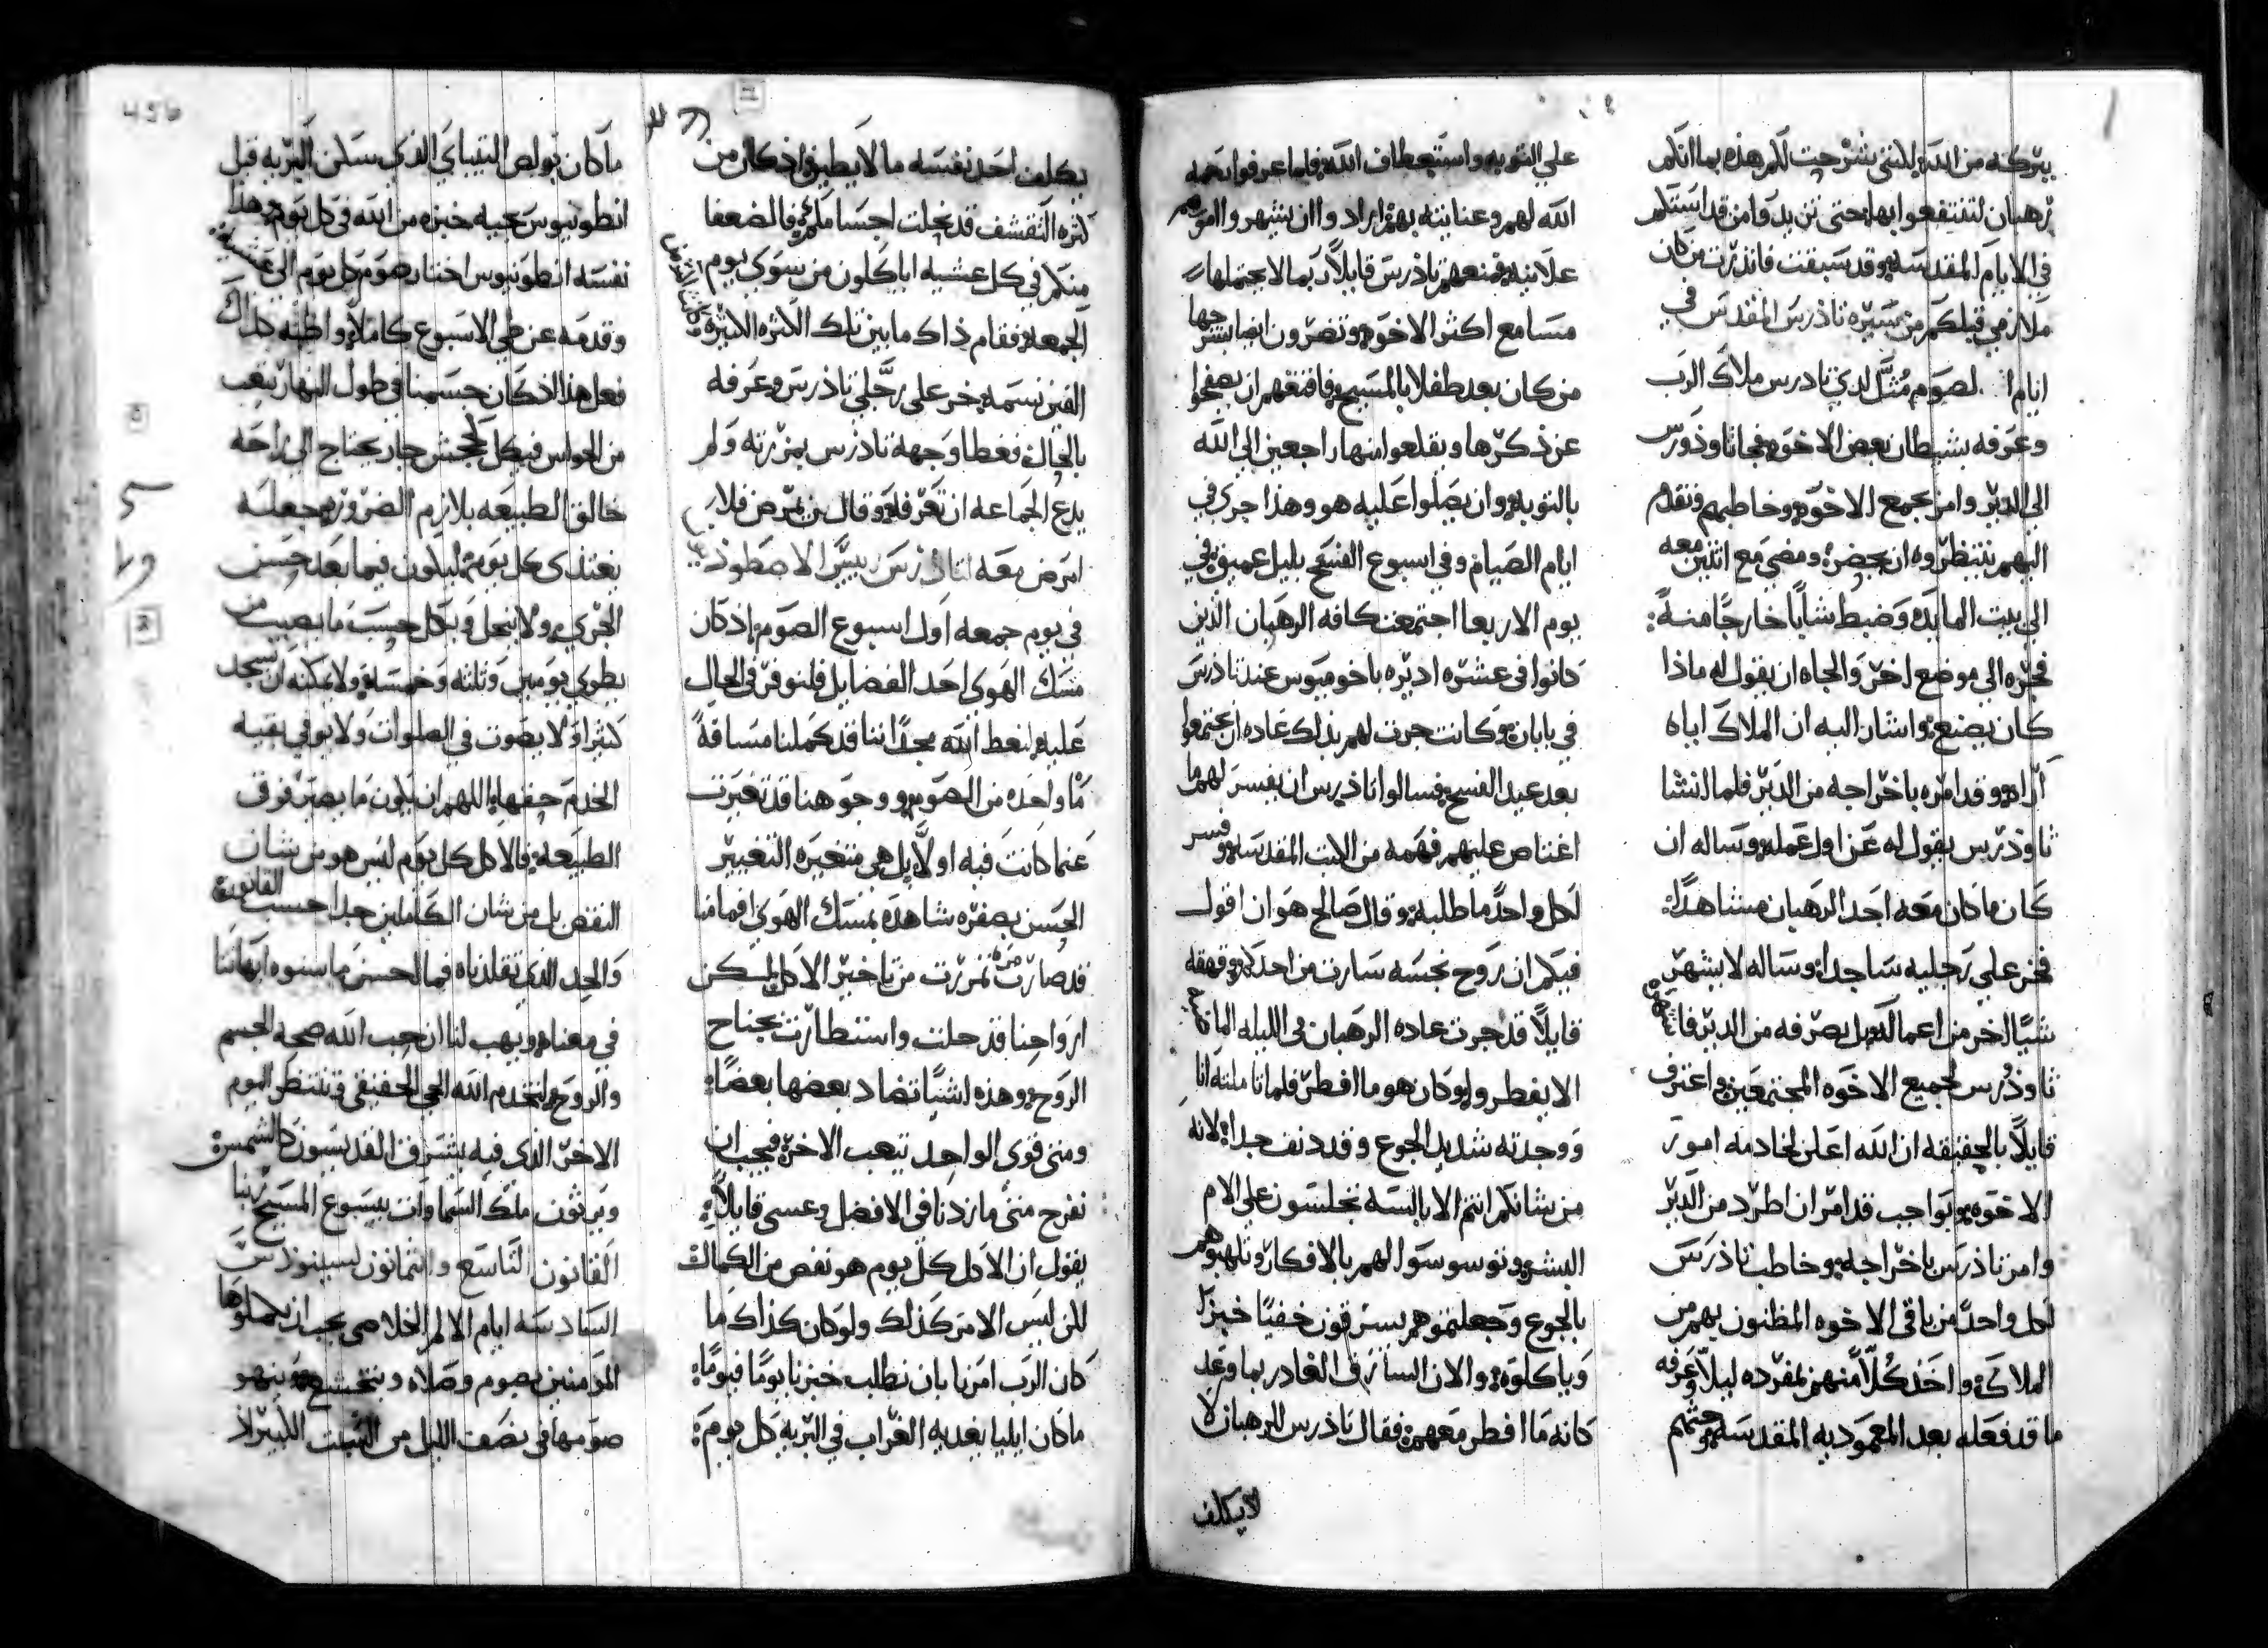 يتركه من الله لكنني شرحت لكم هذه بما انكم
رهبان لتنتفعوا بها حتى نزيد وامن قد استلم
في الايام المقدسه وقد سبقت فانذرت من كان
ملازمي قبلكم من سيره تاذرس المقدس في
لصوم مثل لدي تادرس ملاك الرب
وعرفه بشيطان بعض الاخوه فجا تاوذورس
الى الدير وامر بجمع الاخوه وخاطبهم فتقدم
اليهم ينتظروه ان يحضره ومضى مع اثنين معه
الى بيت المايده وضبط شابا خارجا منه
فجره الى موضع اخر والجاه ان يقول له ماذا
كان يصنع واشار اليه ان الملاك اياه
اراه وقد امره باخراجه من الدير فلما انشا
تاوذرس يقول له عن اول عمله وساله ان
كان ما كان معه احد الرهبان مشاهدا
فخر على رجليه ساجدا وساله لا يشهر
شيا اخر من اعماله بل يصرفه من الدير
تاوذرس لجميع الاخوه المجتمعين واعترف
قايلا بالحقيقه ان الله اعلن لخادمه امور
الاخوه وبواجب قد امر ان اطرد من الدير
وامر تاذرس باخراجه وخاطب تاذرس
لكل واحد من باقي الاخوه المظنون بهم من
الملاك واخذ كلا منهم بمفرده ليلا وعرفه
ما قد فعله بعد المعموديه المقدسه وحثهم
على التوبه واستعطاف الله فلما عرفوا رحمه
الله لهم وعنايته بهم ارادوا ان يشهروا امورهم
علانيه فمنعهم تاذرس قايلا ربما لا يحتملها
مسامع اكثر الاخوه وتضرون ايضا بشرحها
من كان بعد طفلا بالمسيح فاقنعهم ان يصفحوا
عن ذكرها ويقلعوا منها راجعين الى الله
بالتوبه وان يصلوا عليه هو وهذا جرى في
ايام الصيام وفي اسبوع الفسح بليل عميق في
يوم الاربعا اجتمعت كافه الرهبان الذين
كانوا في عشره اديره باخوميوس عند تاذرس
في بابان وكانت جرت لهم بذلك عاده ان يجتمعوا
بعد عيد الفسح فسالوا تاذرس ان يفسر لهم ما
اعتاص عليهم فهمه من الكتب المقدسه وفسر
لكل واحد ما طلبه وقال صالح هو ان اقول
فيكم ان روح نجسه سارت من احدكم وقهقه
قايلا قد جرت عاده الرهبان في الليله الماضيه
الا يفطروا وكان هو ما افطر فلما تاملته انا
ووجدته شديد الجوع وقد دنف جدا لانه
من شانكم انتم الابالسه تجلسون على الام
البشر وتوسوسوا لهم بالافكار وتلهبوهم
بالجوع وجعلتموهم يسرقون خفيا خبزا
وياكلوه والان السارق الغادر بما وعد
كانه ما افطر معهم فقال تاذرس للرهبان لا
لا يكلف
يكلف احد نفسه ما لا يطيق اذ كان من
كثره التقشف قد نحلت اجسامكم فالضعفا
منكم في كل عشيه اياكلون من سوى يوم
الجمعه فقام ذاك ما بين تلك الكثره الكثيره
الفين نسمه خر على رجلي تاذرس وعرفه
بالحال فغطا وجهه تاذرس بمزرته ولم
يدع الجماعه ان تعرفه وقال من تمرض فلا
امرض معه
في يوم جمعه اول اسبوع الصوم اذ كان
مسك الهوى احد الفضايل فلنوفر في الحال
عليه لنعط الله مجدا اننا قد كملنا مسافه
ما واحده من الصوم ووجوهنا قد تغيرت
عنما كانت فيه اولا بل هي متغيره التغيير
الحسن بصفره شاهده بمسك الهوى افمامنا
قد صارت مره تمررت من تاخير الاكل لكن
ارواحنا قد حلت واستطارت بجناح
الروح وهذه اشيا تضاد بعضها بعضا
ومتى قوى الواحد تتعب الاخره فيجب ان
نفرح متى ما زدنا في الافضل وعسى قايلا
يقول ان الاكل كل يوم هو نقص من الكمال
لكن ليس الامر كذلك ولو كان كذاك ما
كان الرب امرنا بان نطلب خبزنا يوما فيوما
ما كان ايليا يغديه الغراب في البريه كل يوم
ما كان بولص التيباي الذي سكن البريه قبل
انطونيوس يجيه خبزه من الله في كل يوم وهذا
نفسه انطونيوس اختار صوم كل يوم الى عشيه
وقدمه عن طي الاسبوع كاملا واظنه كذاك
فعل هذا اذ كان جسمنا في طول النهار يتعب
من الحواس فبكل كجحش جار يحتاج الى راحه
خالق الطبيعه بلازم الضروره جعله
يغتذى كل يوم ليكون فيما بعد حسن
الجري ولا ينحل وياكل حسب ما يصيب من
يطوي يومين وثلثه وخمسه ولا يمكنه ان يسجد
كثيرا ولا يصوت في الصلوات ولا يوفي بقيه
الخدم حقها اللهم ان يكون ما يصير فوق
الطبيعه فالاكل كل يوم ليس هو من شان
النقص بل من شان الكاملين جدا حسب القانون
والحد الذي تقلدناه فيما الحسن ما سنوه ابهاتنا
في معناه ويهب لنا ان حب الله صحه الجسم
والروح لنخدم الله الحي الحقيقي وننتظر اليوم
الاخر الذي فيه يشرق القديسون كالشمس
ويرثون ملك السماوات بيسوع المسيح ربنا
القانون التاسع والثمانون لسينوذس
السادسه ايام الالم الخلاصي يجب ان يكملوها
المؤمنين بصوم وصلاه وبتخشع وينهو
صومها في نصف الليل من السبت الكبير اذ